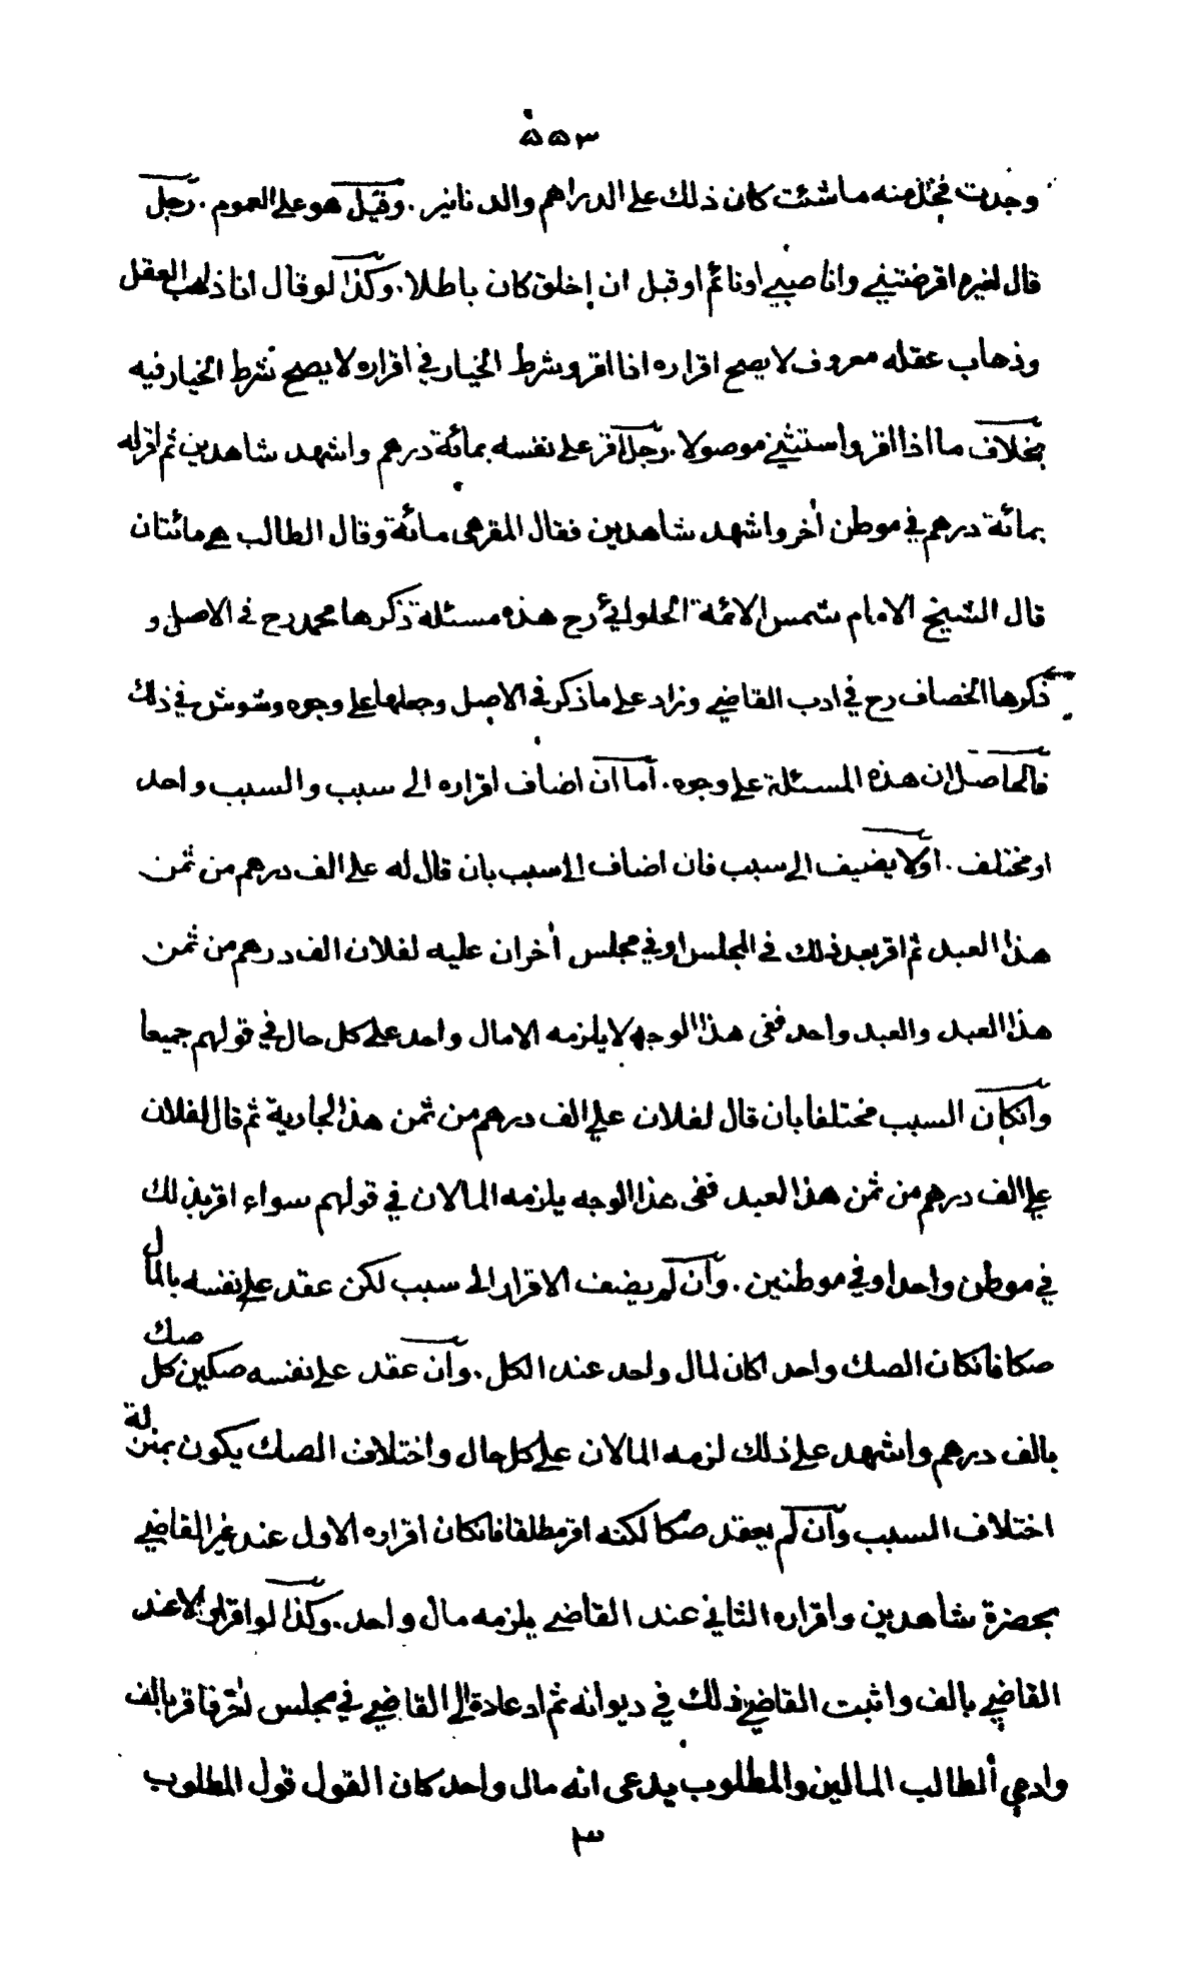 ٥٥٣
وجدت فخذ منه ما شئت كان ذلك على الدراهم والدنانير. وقيل هو على العموم. رجل
قال لغيره اقرضتني وانا صبي او نائم او قبل ان اخلق كان باطلا. وكذا لو قال انا ذاهب العقل
وذهاب عقله معروف لا يصح اقراره اذا اقر وشرط الخيار في اقراره لا يصح شرط الخيار فيه
بخلاف ما اذا اقر واستثنى موصولا. رجل اقر على نفسه بمائة درهم واشهد شاهدين ثم اقر له
بمائة درهم في موطن أخر واشهد شاهدين فقال المقر هى مائة وقال الطالب هي مائتان
قال الشيخ الامام شمس الائمة الحلوائي رح هذه مسئلة ذكرها محمد رح في الاصل و
ذكرها الخصاف رح في ادب القاضي وزاد على ما ذكر في الاصل وجعلها على وجوه وشوش في ذلك
فالحاصل ان هذه المسئلة على وجوه. أما ان اضاف اقراره الى سبب والسبب واحد
او مختلف. اولا يضيف الى سبب فان اضاف الى سبب بان قال له على الف درهم من ثمن
هذا العبد ثم اقر بعد ذلك في المجلس او في مجلس أخر ان عليه لفلان الف درهم من ثمن
هذا العبد والعبد واحد ففى هذا الوجه لا يلزمه الامال واحد على كل حال في قولهم جميعا
وانكان السبب مختلفا بان قال لفلان علي الف درهم من ثمن هذا لجارية ثم قال لفلان
علي الف درهم من ثمن هذا لعبد ففى هذا الوجه يلزمه المالان في قولهم سواء اقر بذلك
في موطن واحد او في موطنين. وان لم يضف الاقرار الى سبب لكن عقد على نفسه بالمال
صكا فانكان الصك واحد اكان لمال واحد عند الكل. وان عقد على نفسه صكين كل صك
بالف درهم واشهد على ذلك لزمه المالان على كل حال واختلاف الصك يكون بمنزلة
اختلاف السبب وان لم يعقد صكا لكنه اقر مطلقا فانكان اقراره الاول عند غير القاضي
بحضرة شاهدين واقراره الثاني عند القاضي يلزمه مال واحد. وكذا لو اقر اولا عند
القاضي بالف واثبت القاضي ذلك في ديوانه ثم ادعادة الى القاضي في مجلس أخر فاقر بالف
وادعي ألطالب المالين والمطلوب يدعى انه مال واحد كان القول قول المطلوب
٣